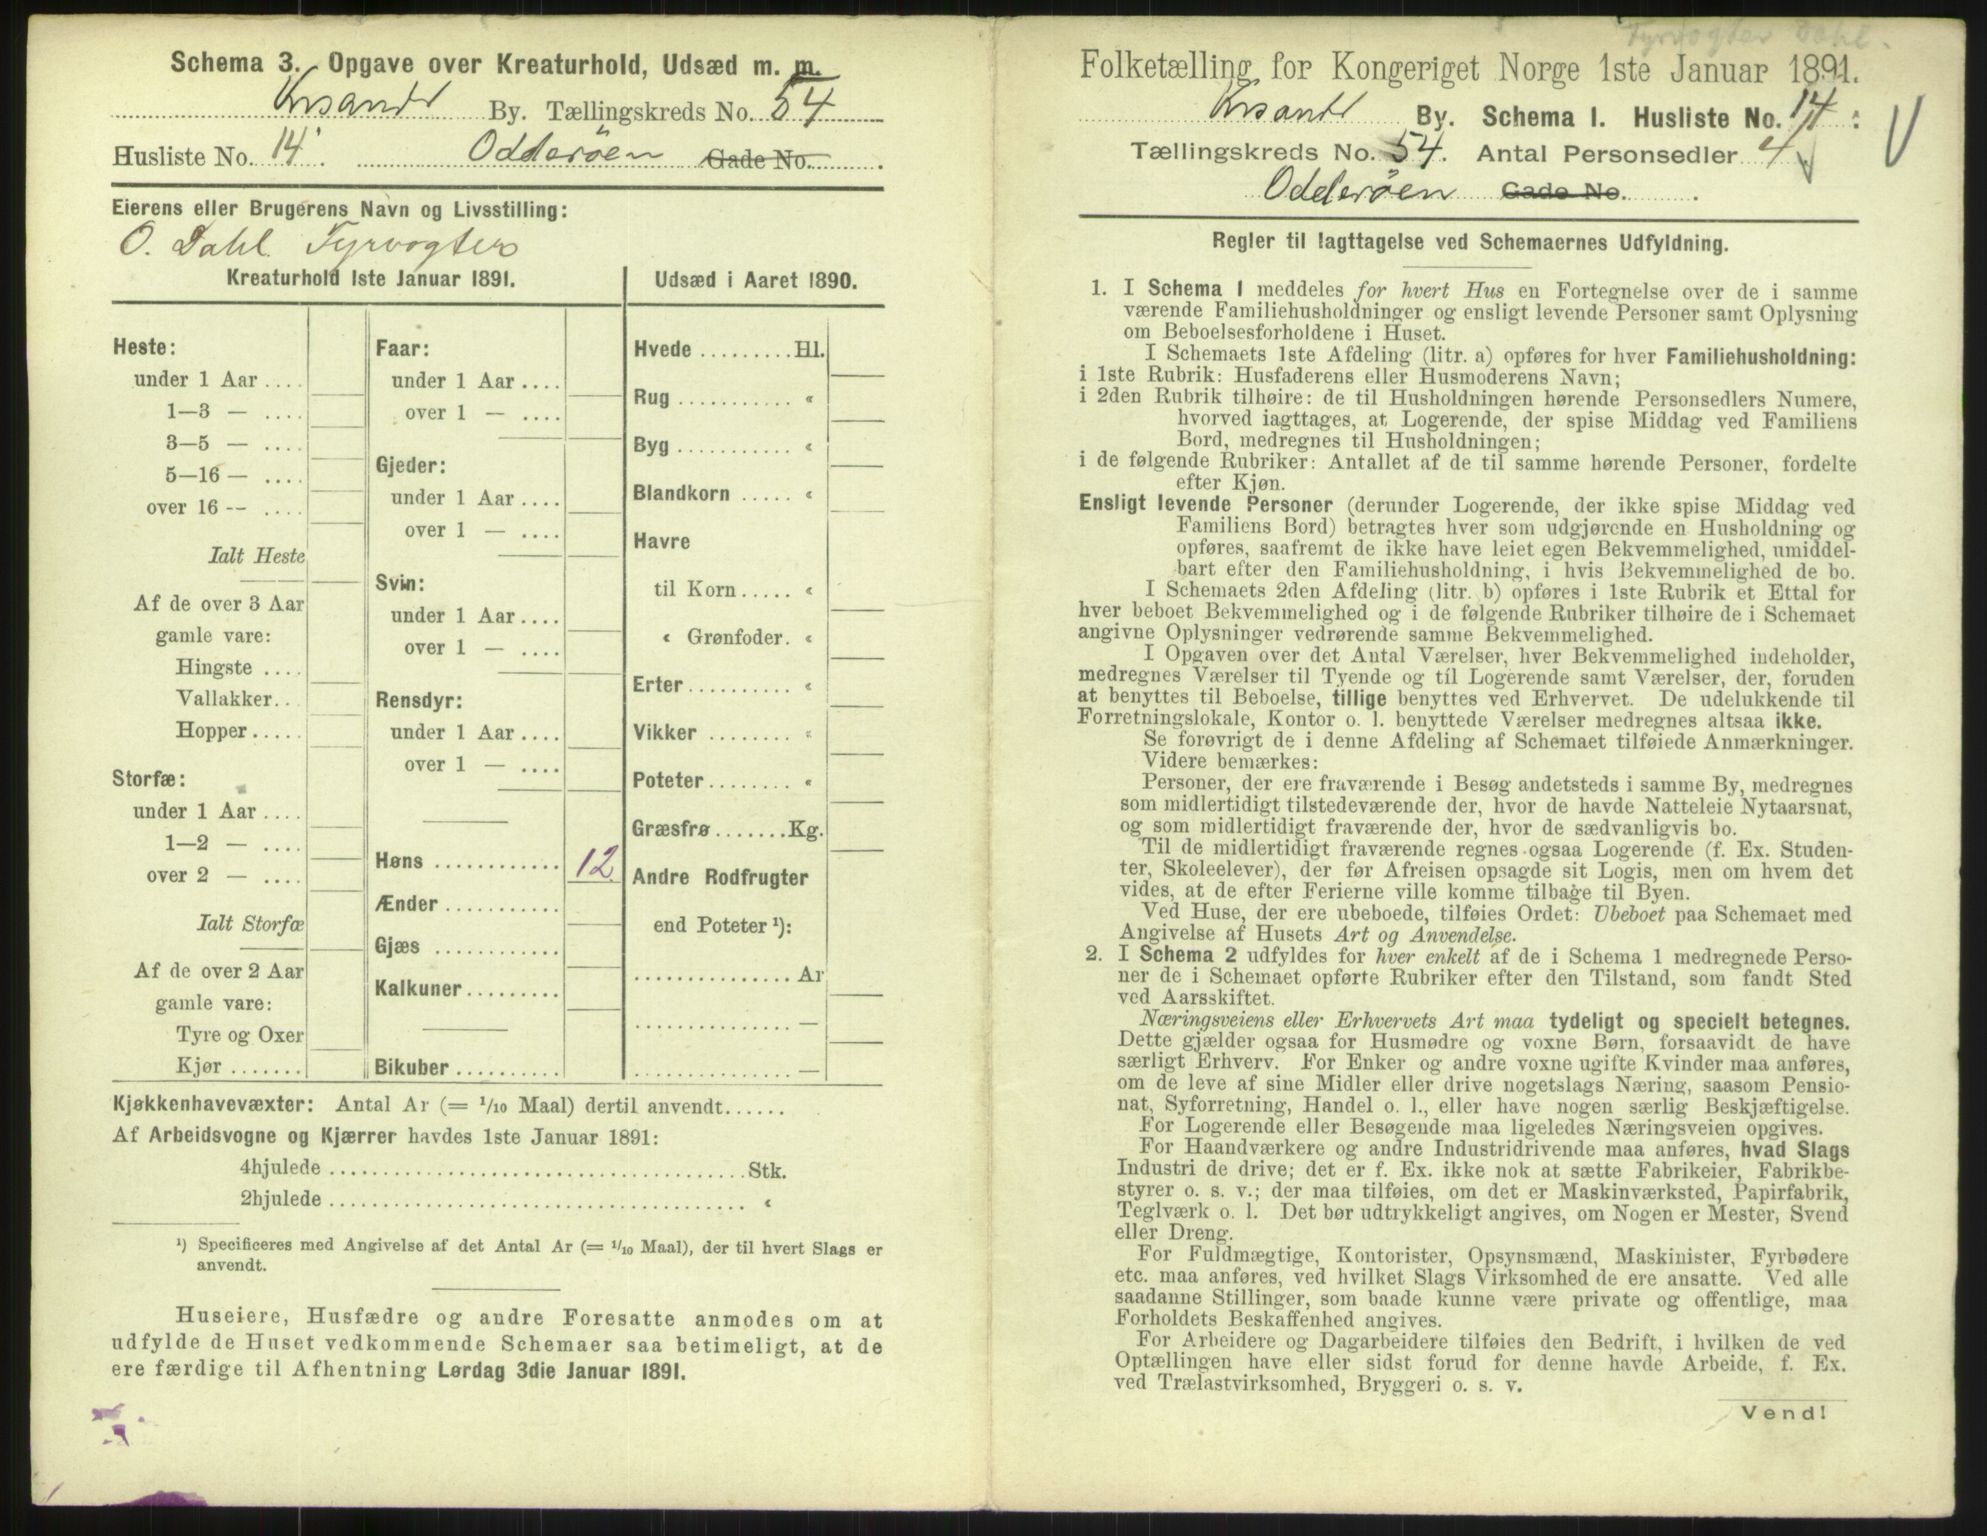 Schema 3. Opgave over Kreaturhold, Udsæd m. m.
Krsand By. Tællingskreds No. 54
Husliste No. 14. Odderøen Gade No.
Eierens eller Brugerens Navn og Livsstilling:
O. Dahl. Fyrvogter
Kreaturhold 1ste Januar 1891.
Heste:
under 1 Aar ....
1—3 — ....
3—5 — ....
5—16 — ....
over 16 -- ....
Ialt Heste
Af de over 3 Aar
gamle vare:
Hingste ....
Vallakker..
Hopper.....
Storfæ:
under 1 Aar ....
1—2 — ....
over 2 — ....
Ialt Storfæ
Af de over 2 Aar
gamle vare:
Tyre og Oxer
Kjør .......
Faar:
under 1 Aar ....
over 1 — ....
Gjeder:
under 1 Aar ....
over 1 — ....
Svin:
under 1 Aar ....
over 1 — ....
Rensdyr:
under 1 Aar ....
over 1 — ....
Høns ........... 12.
Ænder ..........
Gjæs ...........
Kalkuner.........
Bikuber..........
Udsæd i Aaret 1890.
Hvede .........Hl.
Rug ........... «
Byg ........... «
Blandkorn ..... «
Havre
til Korn..... «
« Grønfoder. «
Erter .......... «
Vikker ........ «
Poteter........ «
Græsfrø.......Kg.
Andre Rodfrugter
end Poteter ¹):
............... Ar
............... —
............... —
Kjøkkenhavevæxter: Antal Ar (= 1/10 Maal) dertil anvendt......
Af Arbeidsvogne og Kjærrer havdes 1ste Januar 1891:
4hjulede ........................................Stk.
2hjulede ........................................ «
¹) Specificeres med Angivelse af det Antal Ar (= 1/10 Maal), der til hvert Slags er
anvendt.
Huseiere, Husfædre og andre Foresatte anmodes om at
udfylde de Huset vedkommende Schemaer saa betimeligt, at de
ere færdige til Afhentning Lørdag 3die Januar 1891.
Fyrvogter Dahl.
Folketælling for Kongeriget Norge 1ste Januar 1891.
Krsand By. Schema I. Husliste No. 14.
Tællingskreds No. 54. Antal Personsedler 4
Odderøen Gade No.
Regler til Iagttagelse ved Schemaernes Udfyldning.
1. I Schema 1 meddeles for hvert Hus en Fortegnelse over de i samme
værende Familiehusholdninger og ensligt levende Personer samt Oplysning
om Beboelsesforholdene i Huset.
I Schemaets 1ste Afdeling (litr. a) opføres for hver Familiehusholdning:
i 1ste Rubrik: Husfaderens eller Husmoderens Navn;
i 2den Rubrik tilhøire: de til Husholdningen hørende Personsedlers Numere,
hvorved iagttages, at Logerende, der spise Middag ved Familiens
Bord, medregnes til Husholdningen;
i de følgende Rubriker: Antallet af de til samme hørende Personer, fordelte
efter Kjøn.
Ensligt levende Personer (derunder Logerende, der ikke spise Middag ved
Familiens Bord) betragtes hver som udgjørende en Husholdning og
opføres, saafremt de ikke have leiet egen Bekvemmelighed, umiddel-
bart efter den Familiehusholdning, i hvis Bekvemmelighed de bo.
I Schemaets 2den Afdeling (litr. b) opføres i 1ste Rubrik et Ettal for
hver beboet Bekvemmelighed og i de følgende Rubriker tilhøire de i Schemaet
angivne Oplysninger vedrørende samme Bekvemmelighed.
I Opgaven over det Antal Værelser, hver Bekvemmelighed indeholder,
medregnes Værelser til Tyende og til Logerende samt Værelser, der, foruden
at benyttes til Beboelse, tillige benyttes ved Erhvervet. De udelukkende til
Forretningslokale, Kontor o. l. benyttede Værelser medregnes altsaa ikke.
Se forøvrigt de i denne Afdeling af Schemaet tilføiede Anmærkninger.
Videre bemærkes:
Personer, der ere fraværende i Besøg andetsteds i samme By, medregnes
som midlertidigt tilstedeværende der, hvor de havde Natteleie Nytaarsnat,
og som midlertidigt fraværende der, hvor de sædvanligvis bo.
Til de midlertidigt fraværende regnes ogsaa Logerende (f. Ex. Studen-
ter, Skoleelever), der før Afreisen opsagde sit Logis, men om hvem det
vides, at de efter Ferierne ville komme tilbage til Byen.
Ved Huse, der ere ubeboede, tilføies Ordet: Ubeboet paa Schemaet med
Angivelse af Husets Art og Anvendelse.
2. I Schema 2 udfyldes for hver enkelt af de i Schema 1 medregnede Perso-
ner de i Schemaet opførte Rubriker efter den Tilstand, som fandt Sted
ved Aarsskiftet.
Næringsveiens eller Erhvervets Art maa tydeligt og specielt betegnes.
Dette gjælder ogsaa for Husmødre og voxne Børn, forsaavidt de have
særligt Erhverv. For Enker og andre voxne ugifte Kvinder maa anføres,
om de leve af sine Midler eller drive nogetslags Næring, saasom Pensio-
nat, Syforretning, Handel o. l., eller have nogen særlig Beskjæftigelse.
For Logerende eller Besøgende maa ligeledes Næringsveien opgives.
For Haandværkere og andre Industridrivende maa anføres, hvad Slags
Industri de drive; det er f. Ex. ikke nok at sætte Fabrikeier, Fabrikbe-
styrer o. s. v.; der maa tilføies, om det er Maskinværksted, Papirfabrik,
Teglværk o. l. Det bør udtrykkeligt angives, om Nogen er Mester, Svend
eller Dreng.
For Fuldmægtige, Kontorister, Opsynsmænd, Maskinister, Fyrbødere
etc. maa anføres, ved hvilket Slags Virksomhed de ere ansatte. Ved alle
saadanne Stillinger, som baade kunne være private og offentlige, maa
Forholdets Beskaffenhed angives.
For Arbeidere og Dagarbeidere tilføies den Bedrift, i hvilken de ved
Optællingen have eller sidst forud for denne havde Arbeide, f. Ex.
ved Trælastvirksomhed, Bryggeri o. s. v.
Vend!